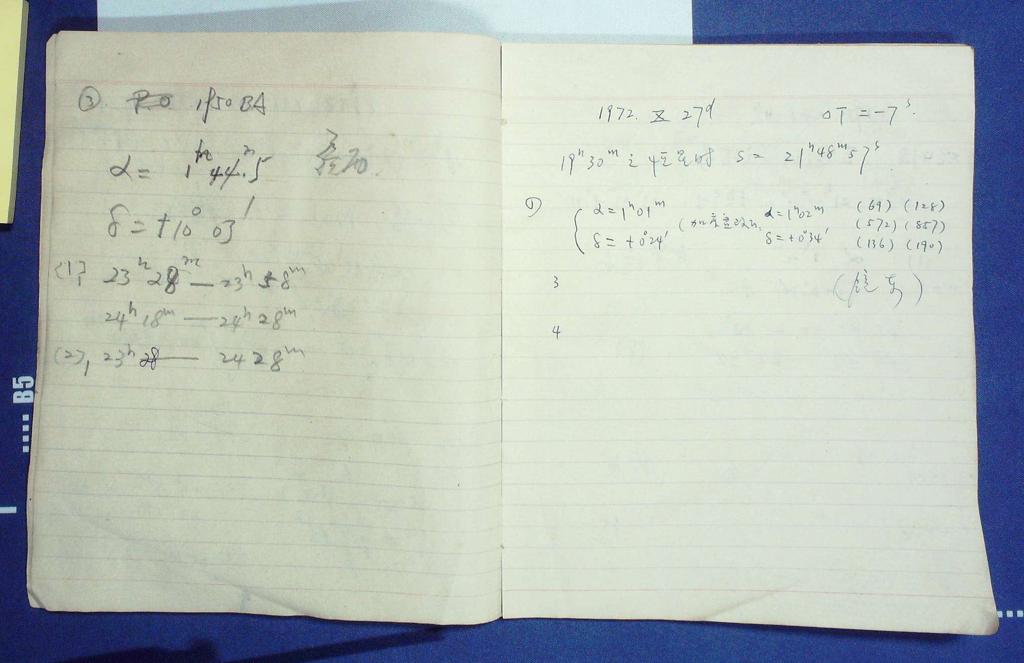 ③ P.O 1950 BA
α = 1ʰ 44ᵐ.5
δ = +10° 03′
(1), 23ʰ 28ᵐ — 23ʰ 58ᵐ
24ʰ 18ᵐ — 24ʰ 28ᵐ
(2), 23ʰ 28 — 24 28ᵐ
1972. X 27ᵈ ΔT = -7ˢ.
19ʰ30ᵐ 时 S = 21ʰ48ᵐ57ˢ
① α = 1ʰ01ᵐ α = 1ʰ02ᵐ (69) (128)
δ = +0°24′ δ = +0°34′ (572) (857)
(136) (190)
3
4
B5